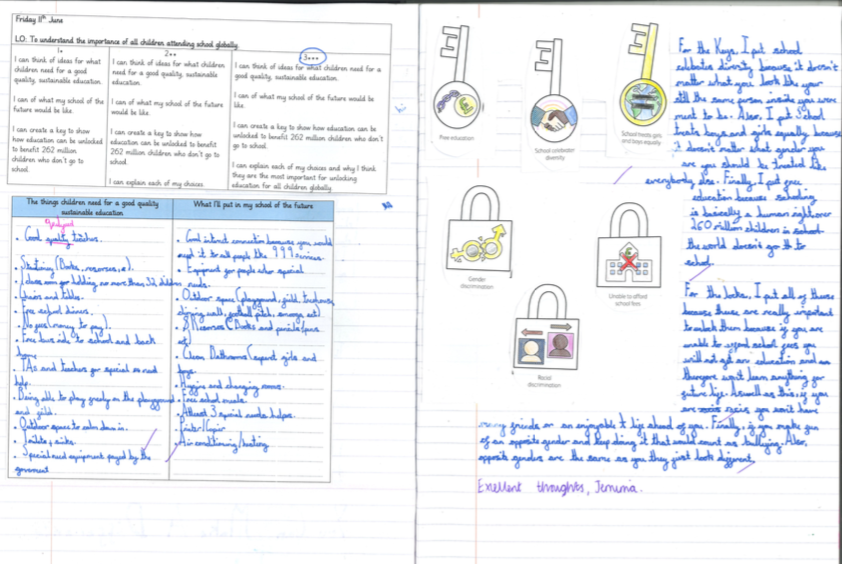 Friday 11th June
LO: To understand the importance of all children attending school globally.
1*
I can think of ideas for what
children need for a good
quality, sustainable education.
I can of what my school of the
future would be like.
I can create a key to show
how education can be unlocked
to benefit 262 million
children who don't go to
school.
2**
I can think of ideas for what children
need for a good quality, sustainable
education.
I can of what my school of the future
would be like.
I can create a key to show how
education can be unlocked to benefit
262 million children who don't go to
school.
I can explain each of my choices
3***
I can think of ideas for what children need for a
good quality, sustainable education.
I can of what my school of the future would be
like.
I can create a key to show how education can be
unlocked to benefit 262 million children who don't
go to school.
I can explain each of my choices and why I think
they are the most important for unlocking
education for all children globally
The things children need for a good quality
sustainable education
• Good quality teachers.
• Stationary (Books, resorses,
• 1 class room for holding no more than 32 children
• Chairs and tables.
• Free school dinners.
• No fees (money to pay).
• Free bus ride to school and back
home
• TAs and teachers for special so need
help.
• Being able to play freely on the playground
and field.
• Outdoor space to calm down in.
• Toilets, sinks.
• Special need equipment payed by the
government
What I'll put in my school of the future
• Good internet connection because you would
need it to
• Equipment for people with special
needs.
• Outdoor space (playground, field,
climbing wall, football pitch,
• Resorses (Books and pencils/pens
• Clean Bathrooms
• Hygine and changing rooms.
• Free school meals.
• Atleast 3 special needs helpers.
• Printer/Copier
• Air conditioning/heating
Free education
School celebrates
diversity
School treats girls
and boys equally
Gender
discrimination
Unable to afford
school fees
Racial
discrimination
For the Keys, I put school
celebrates diversity because it doesn't
matter what you look like your
still the same person inside you were
ment to be. Also, I put School
treats boys and girls equally because
it doesn't matter what gender you
are you should be treated like
everybody else. Finally, I put free
education because schooling
is basically a human right over
260 million children in school
the world doesn't go to
school.
For the locks, I put all of these
because these are really important
to unlock them because if you are
unable to afford school fees you
will not get an education and
therefore won't learn anything for
future life. Aswell as this, if you
are racis, you won't have
many friends or an enjoyable life ahead of you. Finally, if you make fun
of an opposite gender and keep doing it that would count as bullying. Also,
opposite genders are the same as you they just look different.
Exellent thoughts, Jemima.